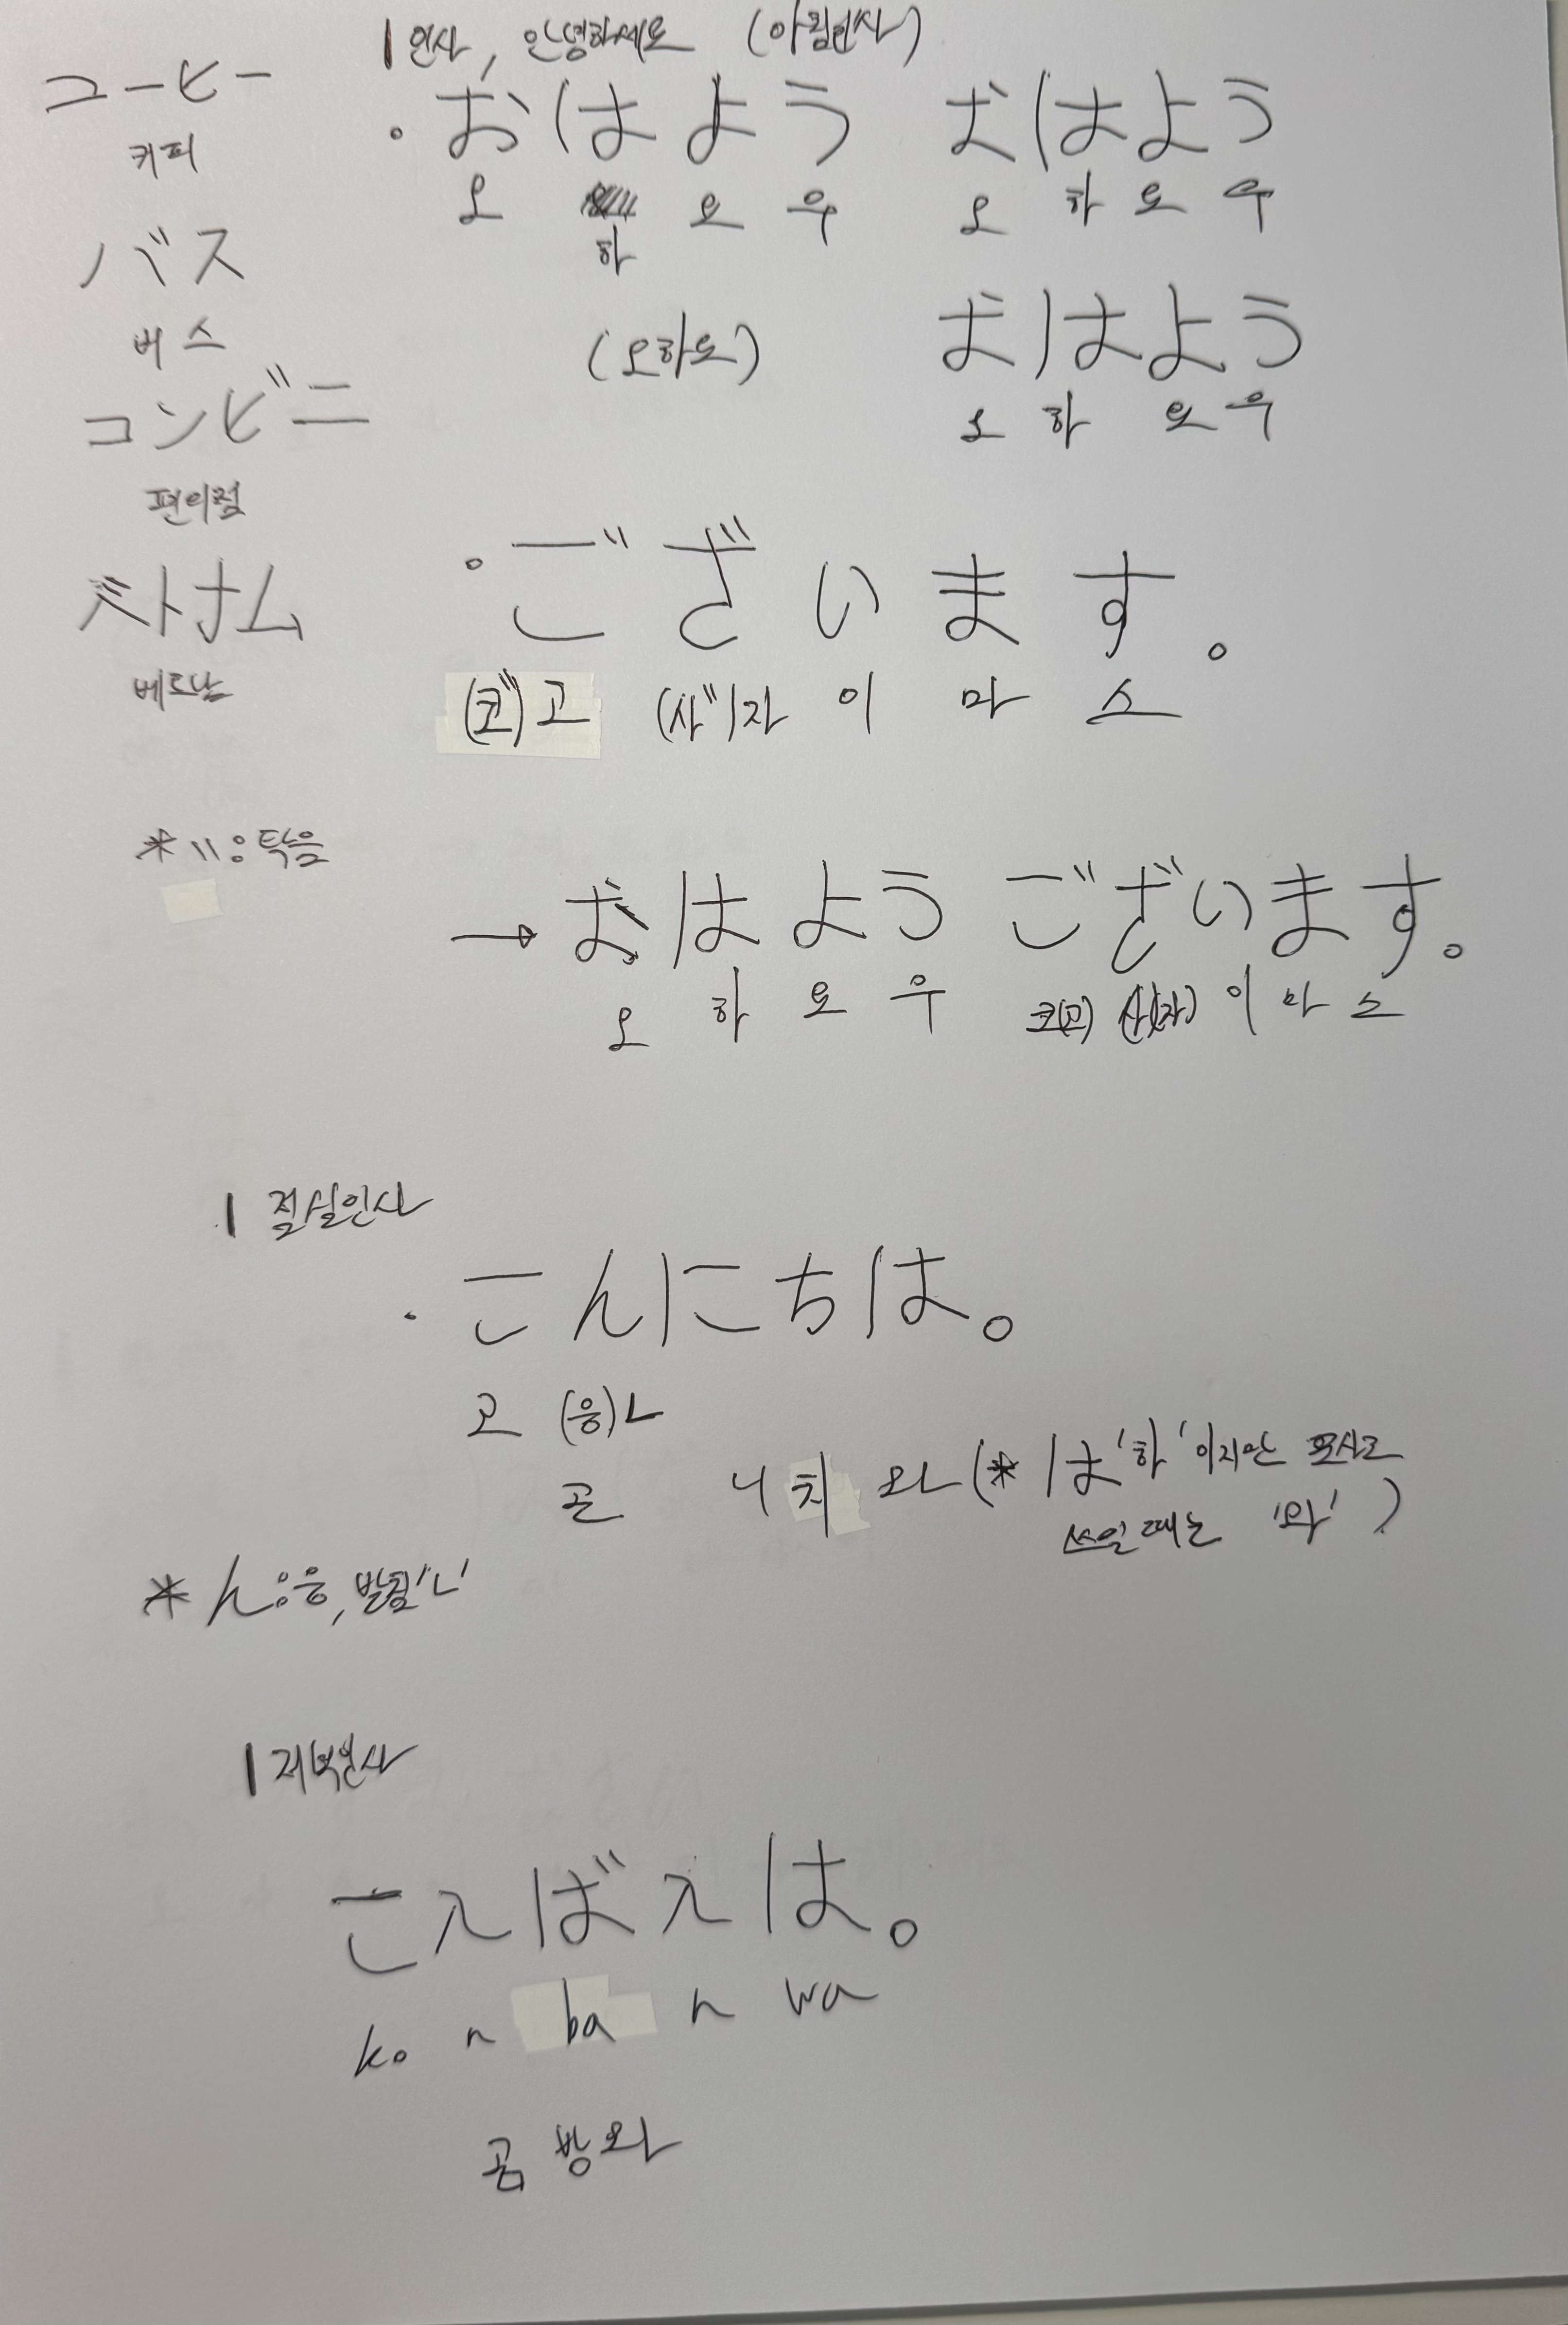 1 인사, 안녕하세요 (아침인사)
コーヒー
커피
・おはよう おはよう
오 하 요 우 오 하 요 우
バス
버스
(오하요) おはよう
오 하 요 우
コンビニ
편의점
・ございます。
ベトナム
베트남
(코")고 (사")자 이 마 스
* ":탁음
→ おはよう ございます。
오 하 요 우 코(고) 사(자) 이 마 스
1 점심인사
・こんにちは。
고 (응)ㄴ
곤 니 치 와 (* は '하' 이지만 조사로
쓰일때는 '와')
* ん:응, 받침'ㄴ'
1 저녁인사
こんばんは。
ko n ba n wa
곰 방 와